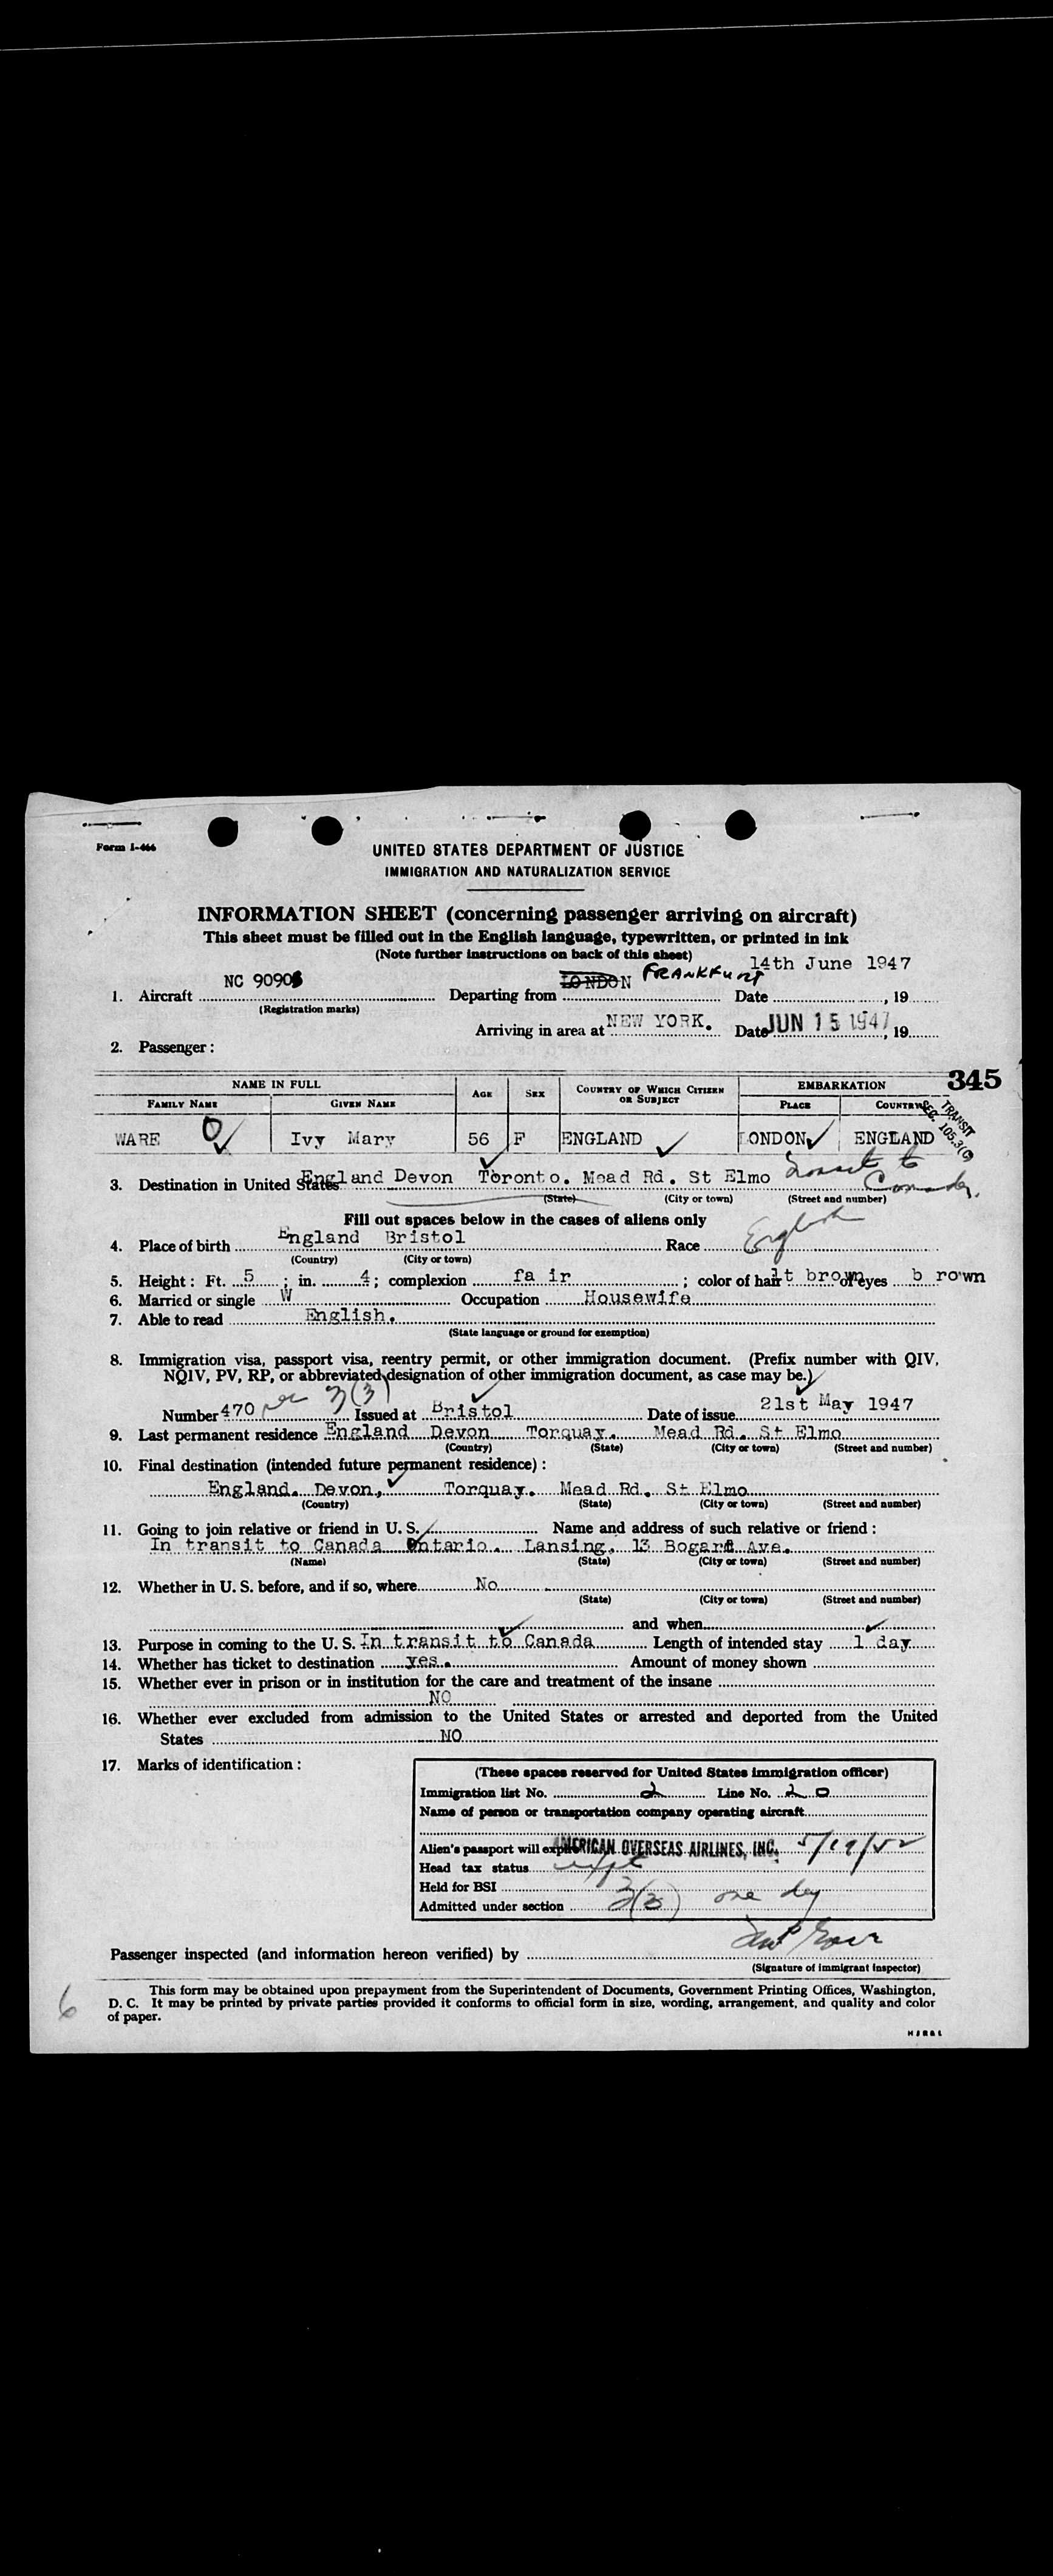 Form I-466
UNITED STATES DEPARTMENT OF JUSTICE
IMMIGRATION AND NATURALIZATION SERVICE
INFORMATION SHEET (concerning passenger arriving on aircraft)
This sheet must be filled out in the English language, typewritten, or printed in ink
(Note further instructions on back of this sheet)
1. Aircraft NC 9090 Departing from LONDON FRANKFURT Date 14th June 1947, 19
(Registration marks)
Arriving in area at NEW YORK. Date JUN 15 1947, 19
2. Passenger:
345
NAME IN FULL AGE SEX COUNTRY OF WHICH CITIZEN OR SUBJECT EMBARKATION
FAMILY NAME GIVEN NAME PLACE COUNTRY
TRANSIT SEC. 105.3(C)
WARE Ivy Mary 56 F ENGLAND LONDON ENGLAND
3. Destination in United States England Devon Toronto. Mead Rd. St Elmo Transit to Canada.
(State) (City or town) (Street and number)
Fill out spaces below in the cases of aliens only
4. Place of birth England Bristol Race English
(Country) (City or town)
5. Height: Ft. 5; in. 4; complexion fa ir; color of hair lt brown of eyes b rown
6. Married or single W Occupation Housewife
7. Able to read English.
(State language or ground for exemption)
8. Immigration visa, passport visa, reentry permit, or other immigration document. (Prefix number with QIV,
NQIV, PV, RP, or abbreviated designation of other immigration document, as case may be.)
Number 470 3(3) Issued at Bristol Date of issue 21st May 1947
9. Last permanent residence England Devon Torquay. Mead Rd. St Elmo
(Country) (State) (City or town) (Street and number)
10. Final destination (intended future permanent residence):
England. Devon, Torquay. Mead Rd. St Elmo
(Country) (State) (City or town) (Street and number)
11. Going to join relative or friend in U. S. Name and address of such relative or friend:
In transit to Canada Ontario. Lansing. 13 Bogart Ave.
(Name) (State) (City or town) (Street and number)
12. Whether in U. S. before, and if so, where No
(State) (City or town) (Street and number)
and when
13. Purpose in coming to the U. S. In transit to Canada Length of intended stay 1 day
14. Whether has ticket to destination yes. Amount of money shown
15. Whether ever in prison or in institution for the care and treatment of the insane
NO
16. Whether ever excluded from admission to the United States or arrested and deported from the United
States NO
17. Marks of identification:
(These spaces reserved for United States immigration officer)
Immigration list No. 2 Line No. 20
Name of person or transportation company operating aircraft
Alien's passport will expire AMERICAN OVERSEAS AIRLINES, INC. 5/19/52
Head tax status
Held for BSI
Admitted under section 3(3) one day
Passenger inspected (and information hereon verified) by
(Signature of immigrant inspector)
This form may be obtained upon prepayment from the Superintendent of Documents, Government Printing Offices, Washington,
D. C. It may be printed by private parties provided it conforms to official form in size, wording, arrangement, and quality and color
of paper.
6